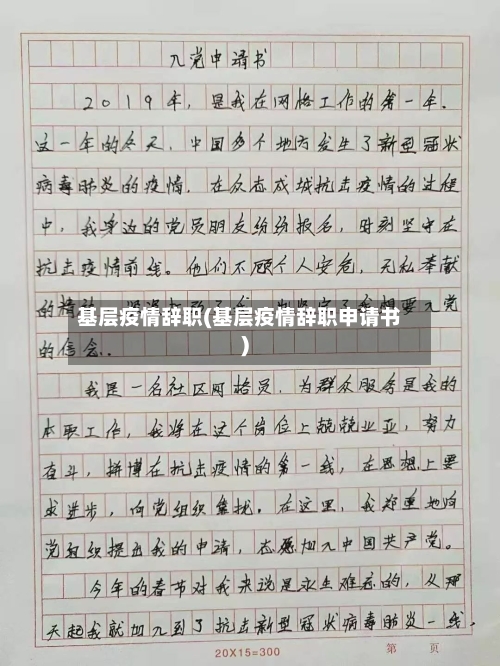 入党申请书
2019年，是我在网格工作的第一年.
这一年的冬天，中国多个地方发生了新型冠状
病毒肺炎的疫情.在众志成城抗击疫情的过程
中，我身边的党员朋友纷纷报名，时刻坚守在
抗击疫情前线。他们不顾个人安危，无私奉献
的精神
要入党
基层疫情辞职(基层疫情辞职申请书
)
的信念.
我是一名社区网格员，为群众服务是我的
本职工作，我将在这个岗位上兢兢业业，努力
奋斗，拼搏在抗击疫情的第一线，在思想上要
求进步，向党组织靠拢。在这里，我郑重地向
党组织提出我的申请，志愿加入中国共产党。
今年的春节对我来说是永生难忘的，从那
天起我就加入到了抗击新型冠状病毒肺炎一线，
20X15=300
第 页